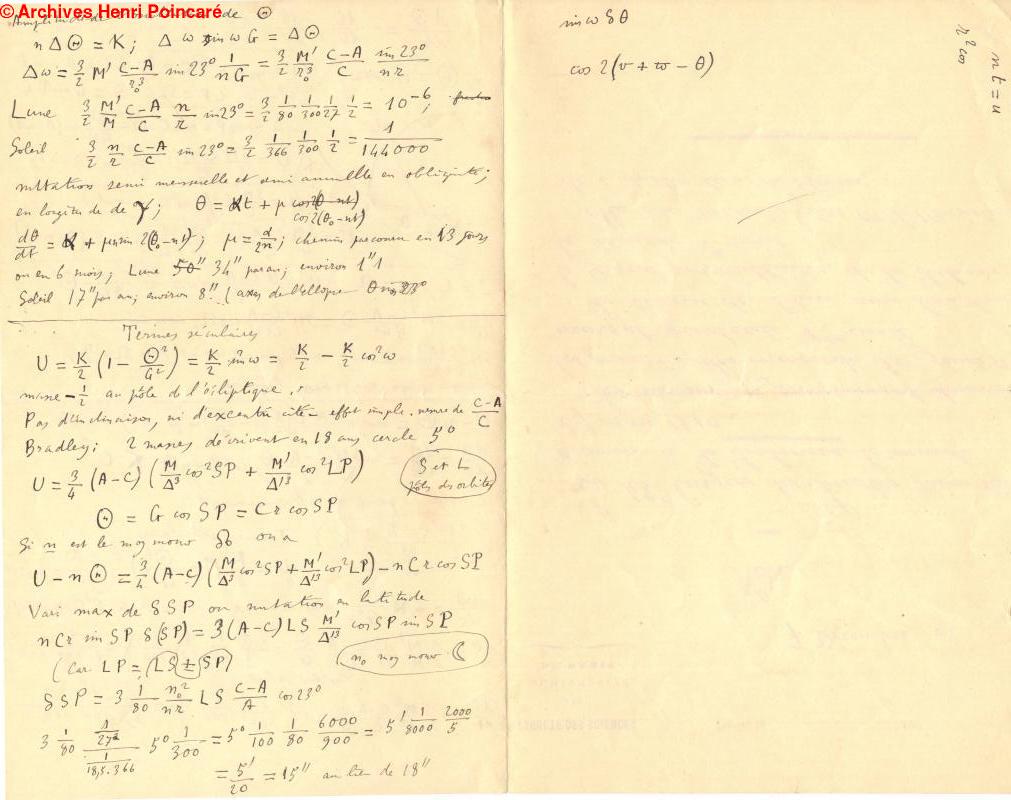 © Archives Henri Poincaré
Amplitude de de Θ
n ΔΘ = K; Δω sin ω G = ΔΘ
Δω = 3/2 M' C-A/r₀³ sin 23° 1/nG = 3/2 M'/r₀³ C-A/C sin 23°/nr
Lune 3/2 M'/M C-A/C n/r sin 23° = 3/2 1/80 1/300 1/27 1/2 = 10⁻⁶;
Soleil 3/2 n/r C-A/C sin 23° = 3/2 1/366 1/300 1/2 = 1/144000
nutation semi mensuelle et semi annuelle en obliquité;
en longitude de γ; θ = αt + μ cos 2(θ - nt)
cos 2(θ₀ - nt)
dθ/dt = α + μn sin 2(θ₀ - nt); μ = α/2n; chemin parcouru en 13 jours
ou en 6 mois; Lune 50" 34" par an; environ 1"1
Soleil 17" par an; environ 8". (axes de l'ellipse θ sin 23°
Termes séculaires
U = K/2 (1 - Θ²/G²) = K/2 sin²ω = K/2 - K/2 cos²ω
masse - 1/2 au pôle de l'écliptique.
Pas d'inclinaison, ni d'excentricité - effet simple. mesure de C-A/C
Bradley; 2 masses décrivent en 18 ans cercle 5°
U = 3/4 (A-C) (M/Δ³ cos² SP + M'/Δ'³ cos² LP)
S et L
pôles des orbites
Θ = G cos SP = Cr cos SP
Si n est le moy mouv ☊ on a
U - nΘ = 3/4 (A-C) (M/Δ³ cos² SP + M'/Δ'³ cos² LP) - nCr cos SP
Vari max de δSP ou nutation en latitude
nCr sin SP δ(SP) = 3(A-C) LS M'/Δ'³ cos SP sin SP
(car LP = LS ± SP)
n₀ moy mouv ☾
δSP = 3 1/80 n₀²/nr LS C-A/A cos 23°
3 1/80 (1/27²)/(1/18,5.366) 5° 1/300 = 5° 1/100 1/80 6000/900 = 5' 1/8000 2000/5
= 5'/20 = 15" au lieu de 18"
sin ω δθ
cos 2(v + ϖ - θ)
r² cos
nt = u